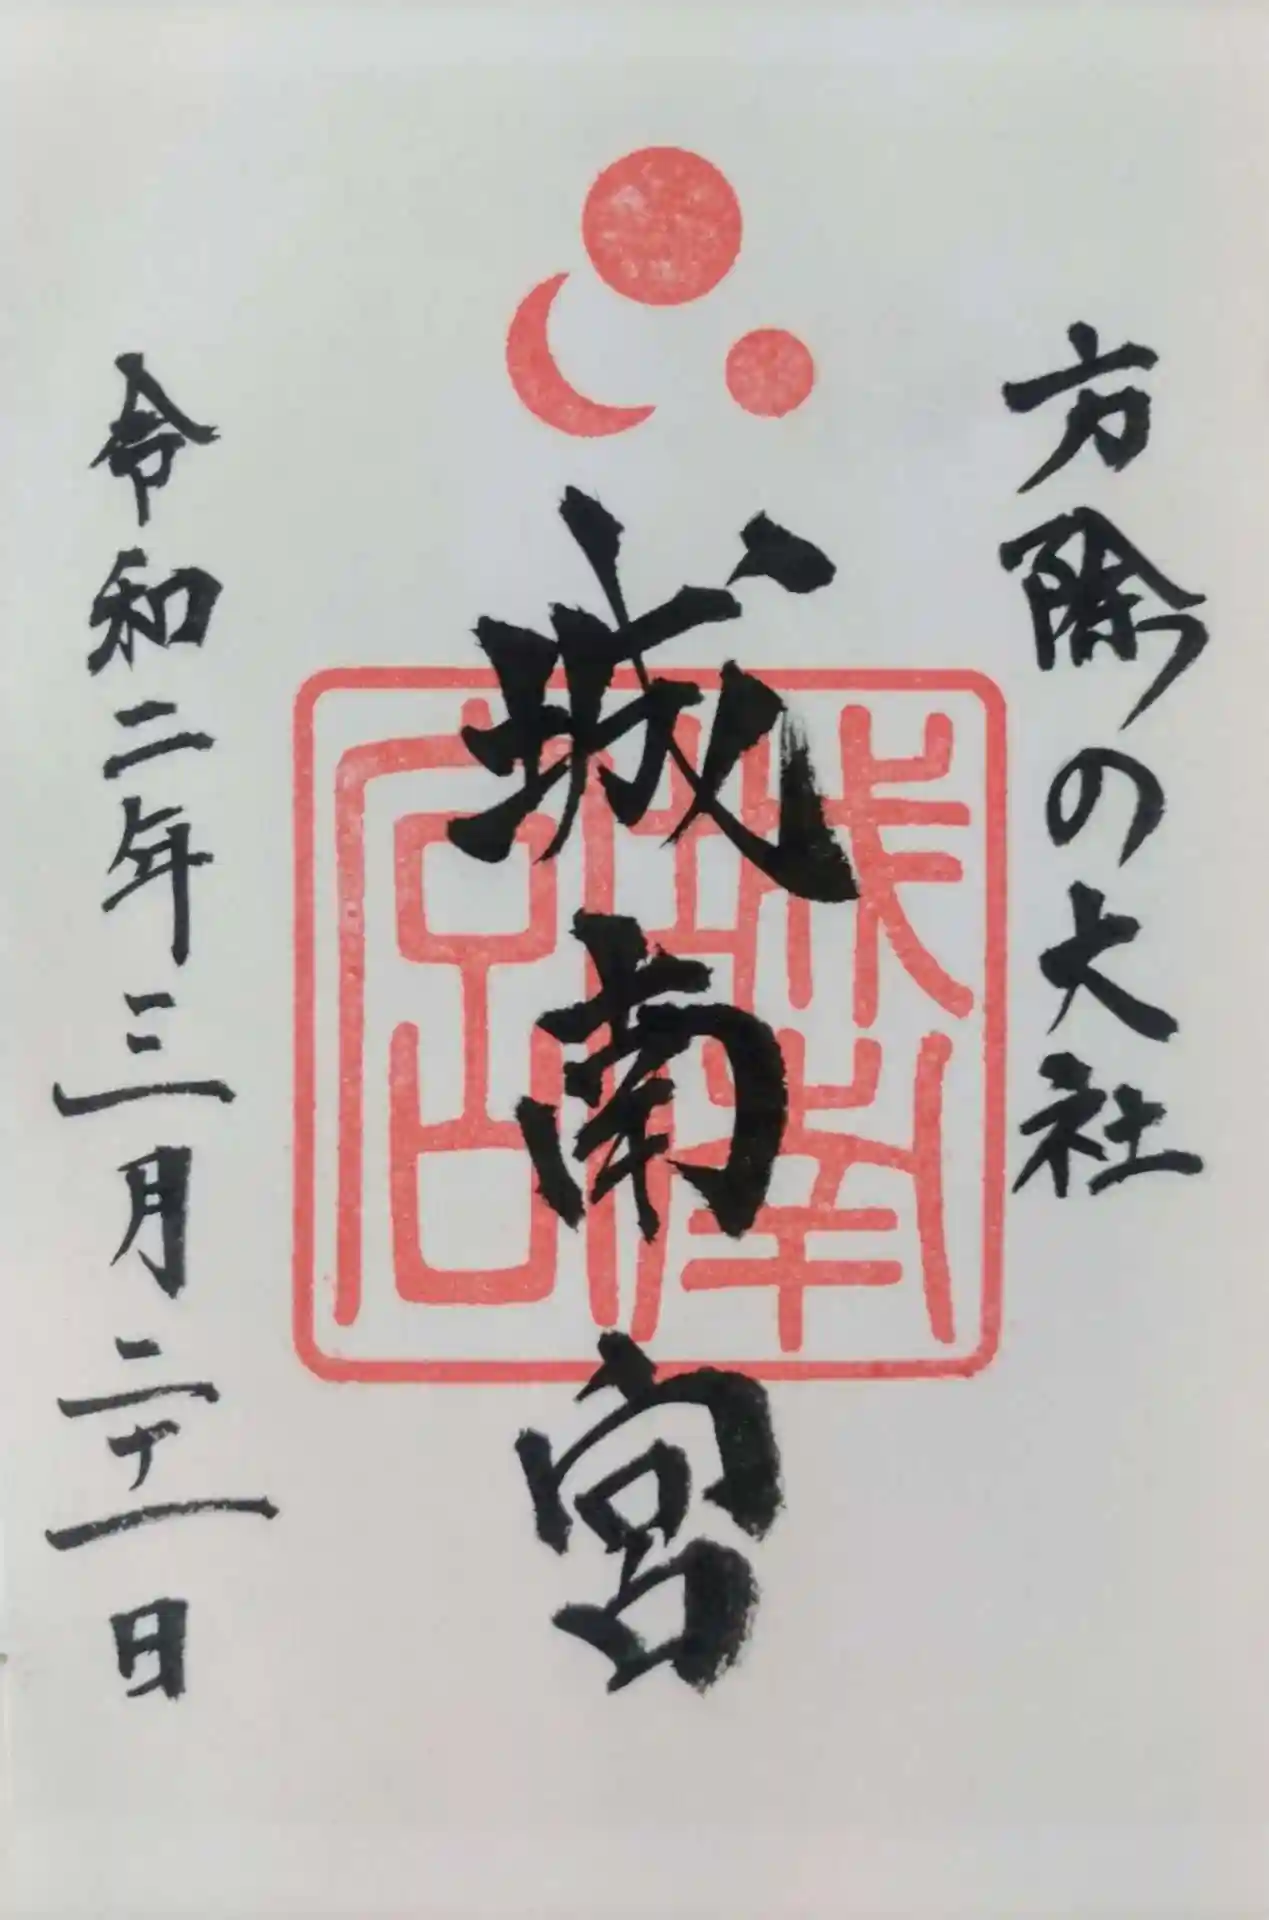 方除の大社
城南宮
城南宮
令和二年三月二十一日